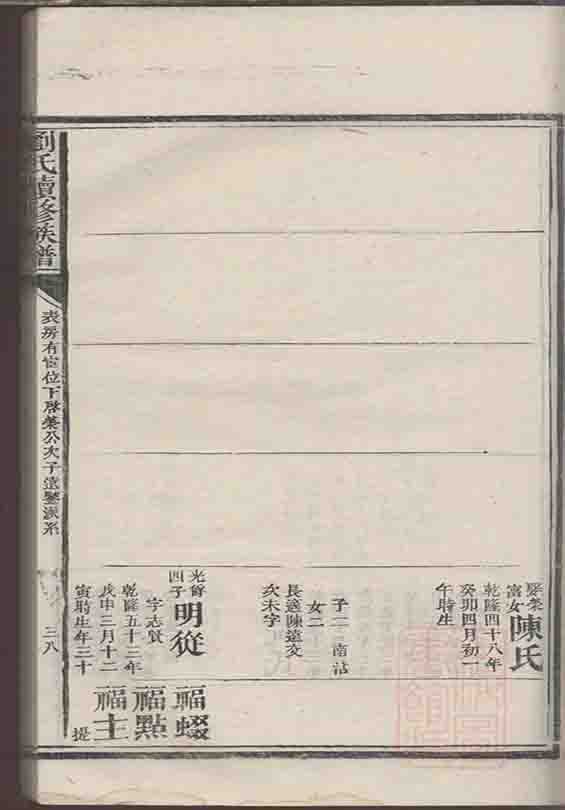 陳氏
富女
乾隆四十八年
癸卯四月初一
午時生
子二 南沾
女二
長適陳遠交
次未字
光
四子
明從
字志賢
乾隆五十三年
戊申三月十二
寅時生年三十
福
福點
福主
提
劉氏續修族譜
表房有官位下啟榮公次子遠鑒派系
三八